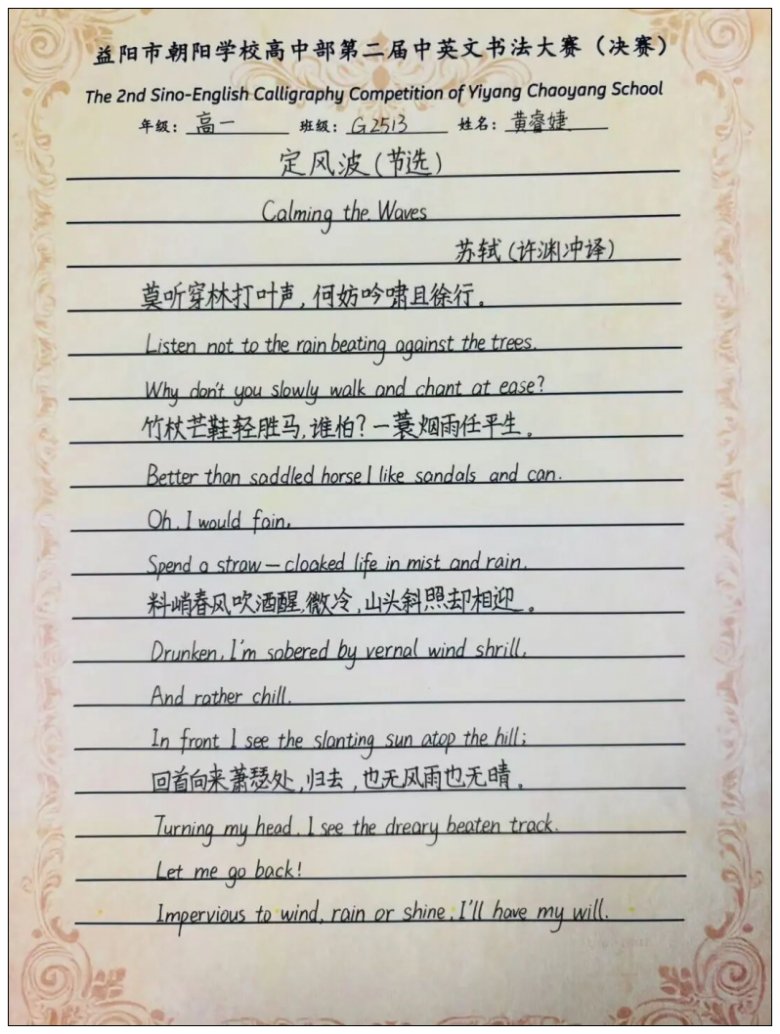 益阳市朝阳学校高中部第二届中英文书法大赛（决赛）
The 2nd Sino-English Calligraphy Competition of Yiyang Chaoyang School
年级：高一 班级：G2513 姓名：黄睿婕
定风波（节选）
Calming the Waves
苏轼（许渊冲译）
莫听穿林打叶声，何妨吟啸且徐行。
Listen not to the rain beating against the trees.
Why don't you slowly walk and chant at ease?
竹杖芒鞋轻胜马，谁怕？一蓑烟雨任平生。
Better than saddled horse I like sandals and can.
Oh, I would fain,
Spend a straw—cloaked life in mist and rain.
料峭春风吹酒醒，微冷，山头斜照却相迎。
Drunken, I'm sobered by vernal wind shrill,
And rather chill.
In front I see the slanting sun atop the hill;
回首向来萧瑟处，归去，也无风雨也无晴。
Turning my head, I see the dreary beaten track.
Let me go back!
Impervious to wind, rain or shine, I'll have my will.